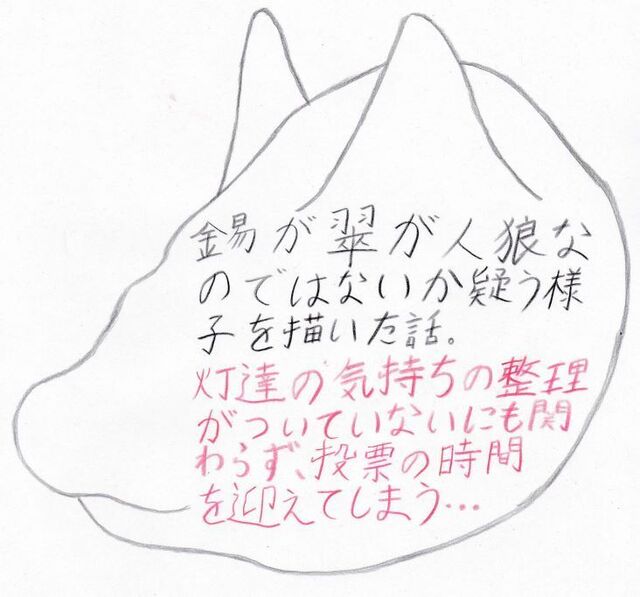 錫が翠が人狼な
のではないか疑う様
子を描いた話。
灯達の気持ちの整理
がついていないにも関
わらず、投票の時間
を迎えてしまう…